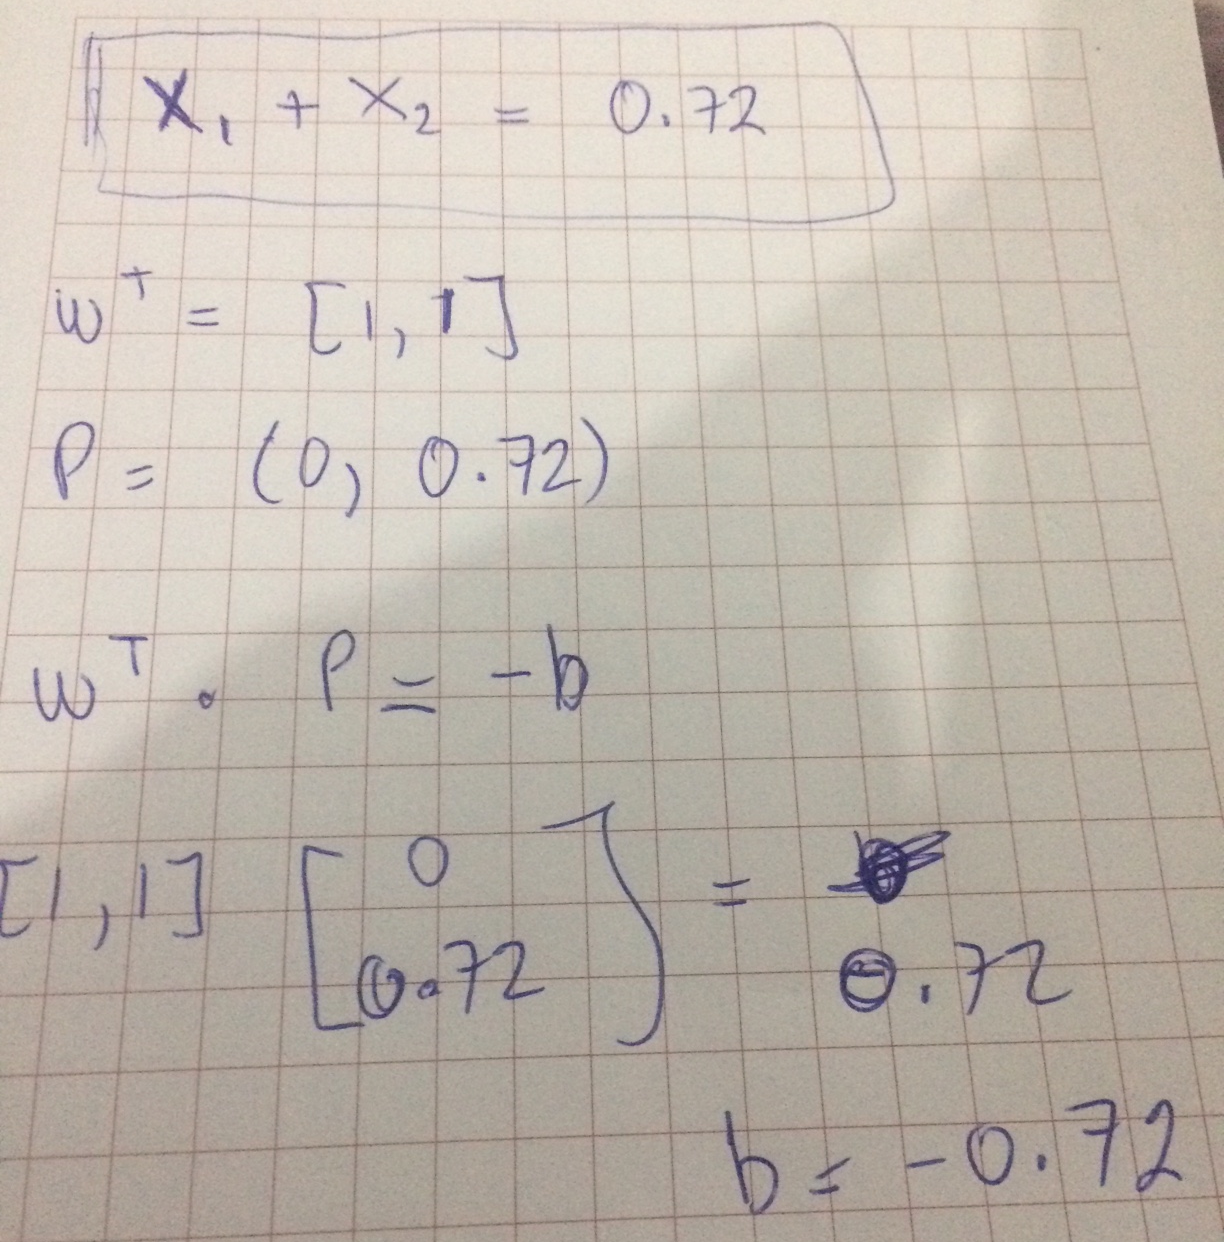 X₁ + X₂ = 0.72
w^T = [1, 1]
P = (0, 0.72)
w^T . P = -b
[1, 1] [0
0.72] = 0.72
b = -0.72